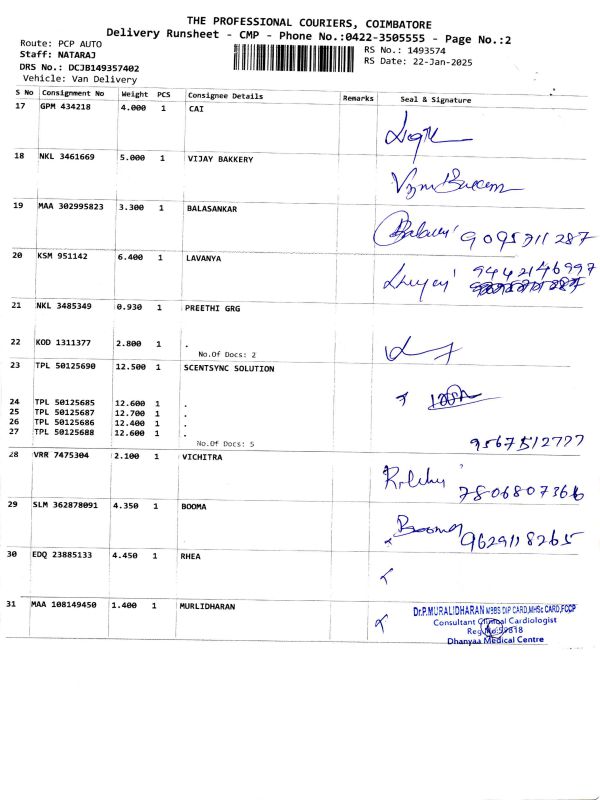 THE PROFESSIONAL COURIERS, COIMBATORE
Delivery Runsheet - CMP - Phone No.:0422-3505555 - Page No.:2
Route: PCP AUTO
Staff: NATARAJ
DRS No.: DCJB149357402
Vehicle: Van Delivery
RS No.: 1493574
RS Date: 22-Jan-2025
S No Consignment No Weight PCS Consignee Details Remarks Seal & Signature
17 GPM 434218 4.000 1 CAI
18 NKL 3461669 5.000 1 VIJAY BAKKERY
19 MAA 302995823 3.300 1 BALASANKAR
9095311287
20 KSM 951142 6.400 1 LAVANYA
9442146997
21 NKL 3485349 0.930 1 PREETHI GRG
22 KOD 1311377 2.800 1 .
No.Of Docs: 2
23 TPL 50125690 12.500 1 SCENTSYNC SOLUTION
24 TPL 50125685 12.600 1 .
25 TPL 50125687 12.700 1 .
26 TPL 50125686 12.400 1 .
27 TPL 50125688 12.600 1 .
No.Of Docs: 5
9567512777
28 VRR 7475304 2.100 1 VICHITRA
7806807366
29 SLM 362878091 4.350 1 BOOMA
Booma 9629118265
30 EDQ 23885133 4.450 1 RHEA
31 MAA 108149450 1.400 1 MURLIDHARAN
Dr.P.MURALIDHARAN MBBS DIP CARD,MHSc CARD,FCCP
Consultant Clinical Cardiologist
Reg.No:59818
Dhanyaa Medical Centre